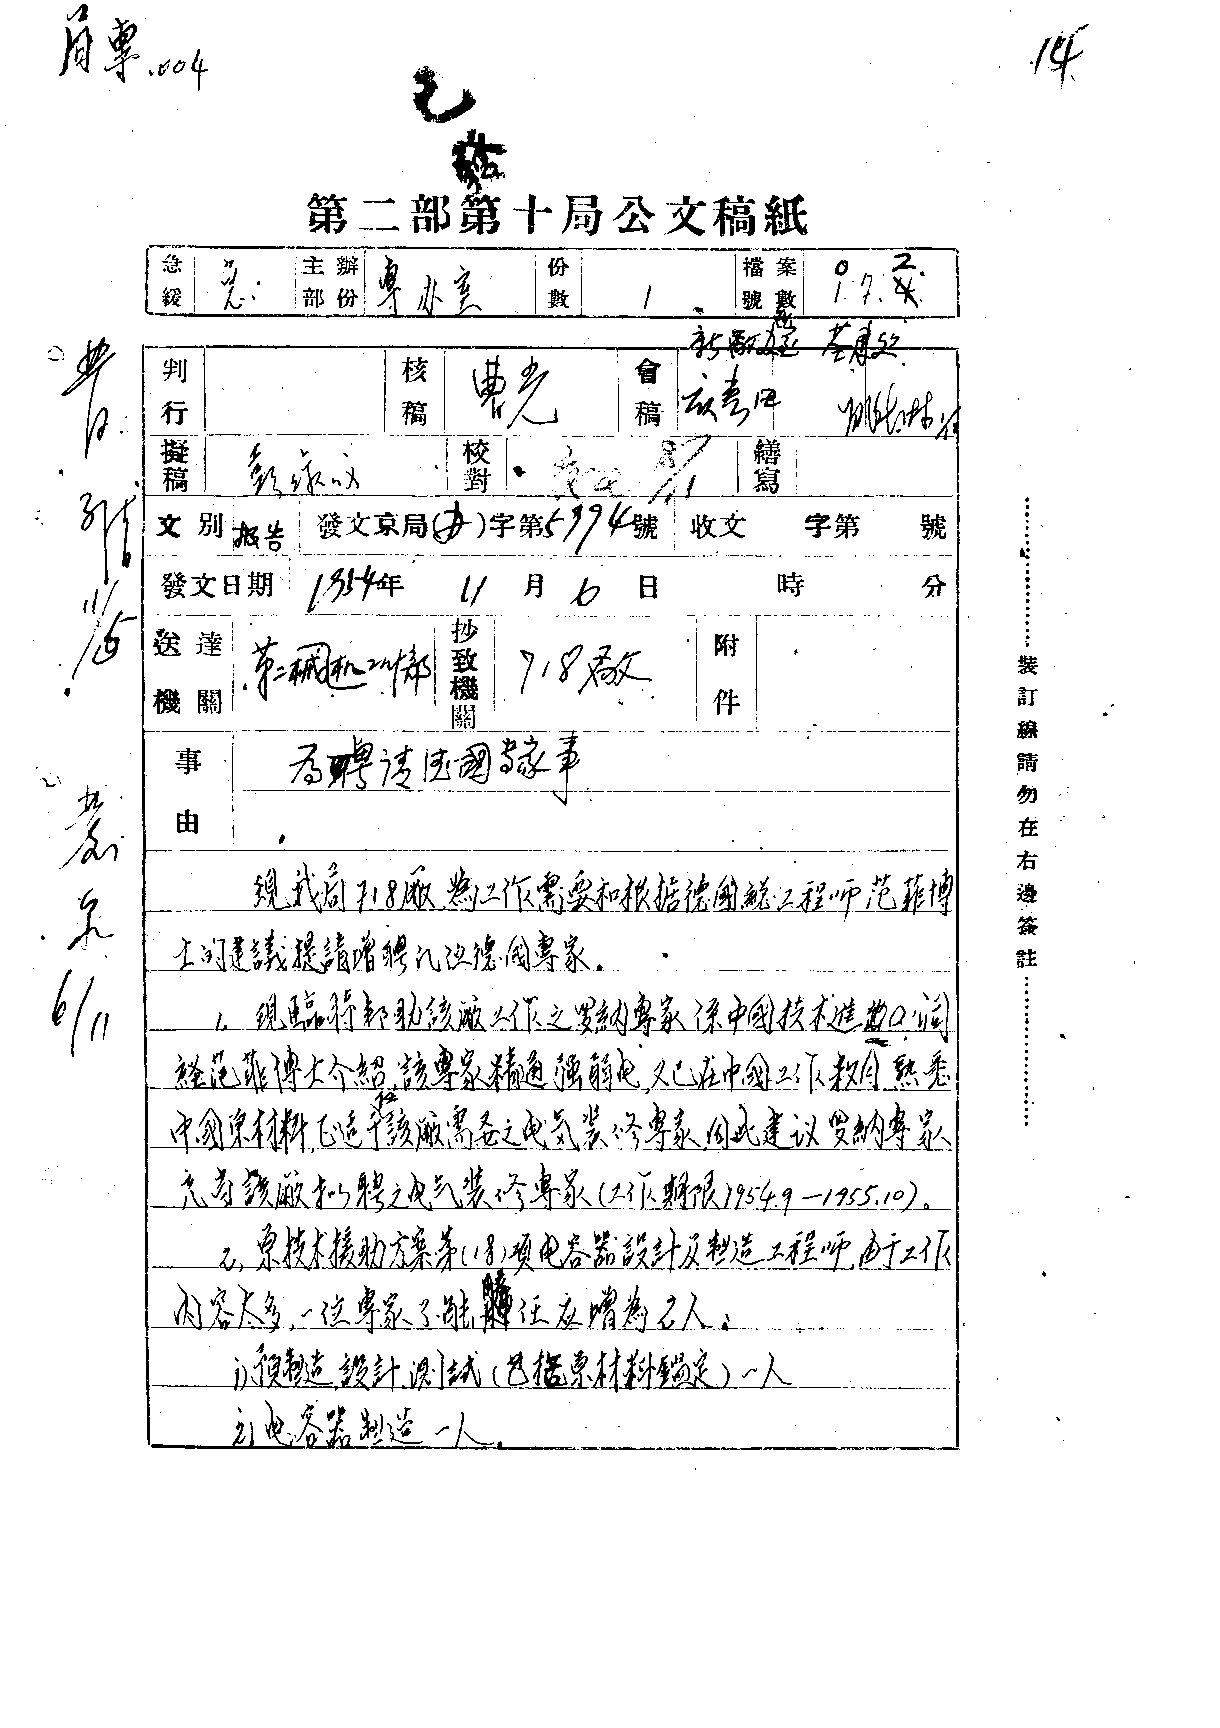 专.004
14
已
第二部第十局公文稿紙
急緩 急 主辦部份 專办室 份數 1 檔案號數 0 2. 1.7.
判行 核稿 曹光 會稿
擬稿 校對 繕寫
文別 报告 發文京局(办)字第5994號 收文 字第 號
發文日期 1954年 11月6日 時 分
送達機關 第二机四十局 抄致機關 718廠 附件
事由 为聘请德國专家事
現我局718廠為工作需要和根据德國總工程师范菲博
士的建議提請增聘几位德國專家。
1. 現臨時帮助该廠工作之罗納專家係中國技术進口公司
經范菲博士介紹,該專家精通强弱电,又已在中國工作数月熟悉
中國原材料,正适于該廠需要之电气装修專家,因此建议罗納專家
充当該廠拟聘之电气装修專家(工作期限1954.9—1955.10)。
2. 原技术援助方案第(18)項电容器設計及制造工程师,由于工作
内容太多,一位專家不能勝任应增為2人。
1)預制造、設計、測試(包括原材料鑑定)一人
2)电容器制造一人。
裝訂線請勿在右邊簽註
11/5
6/11